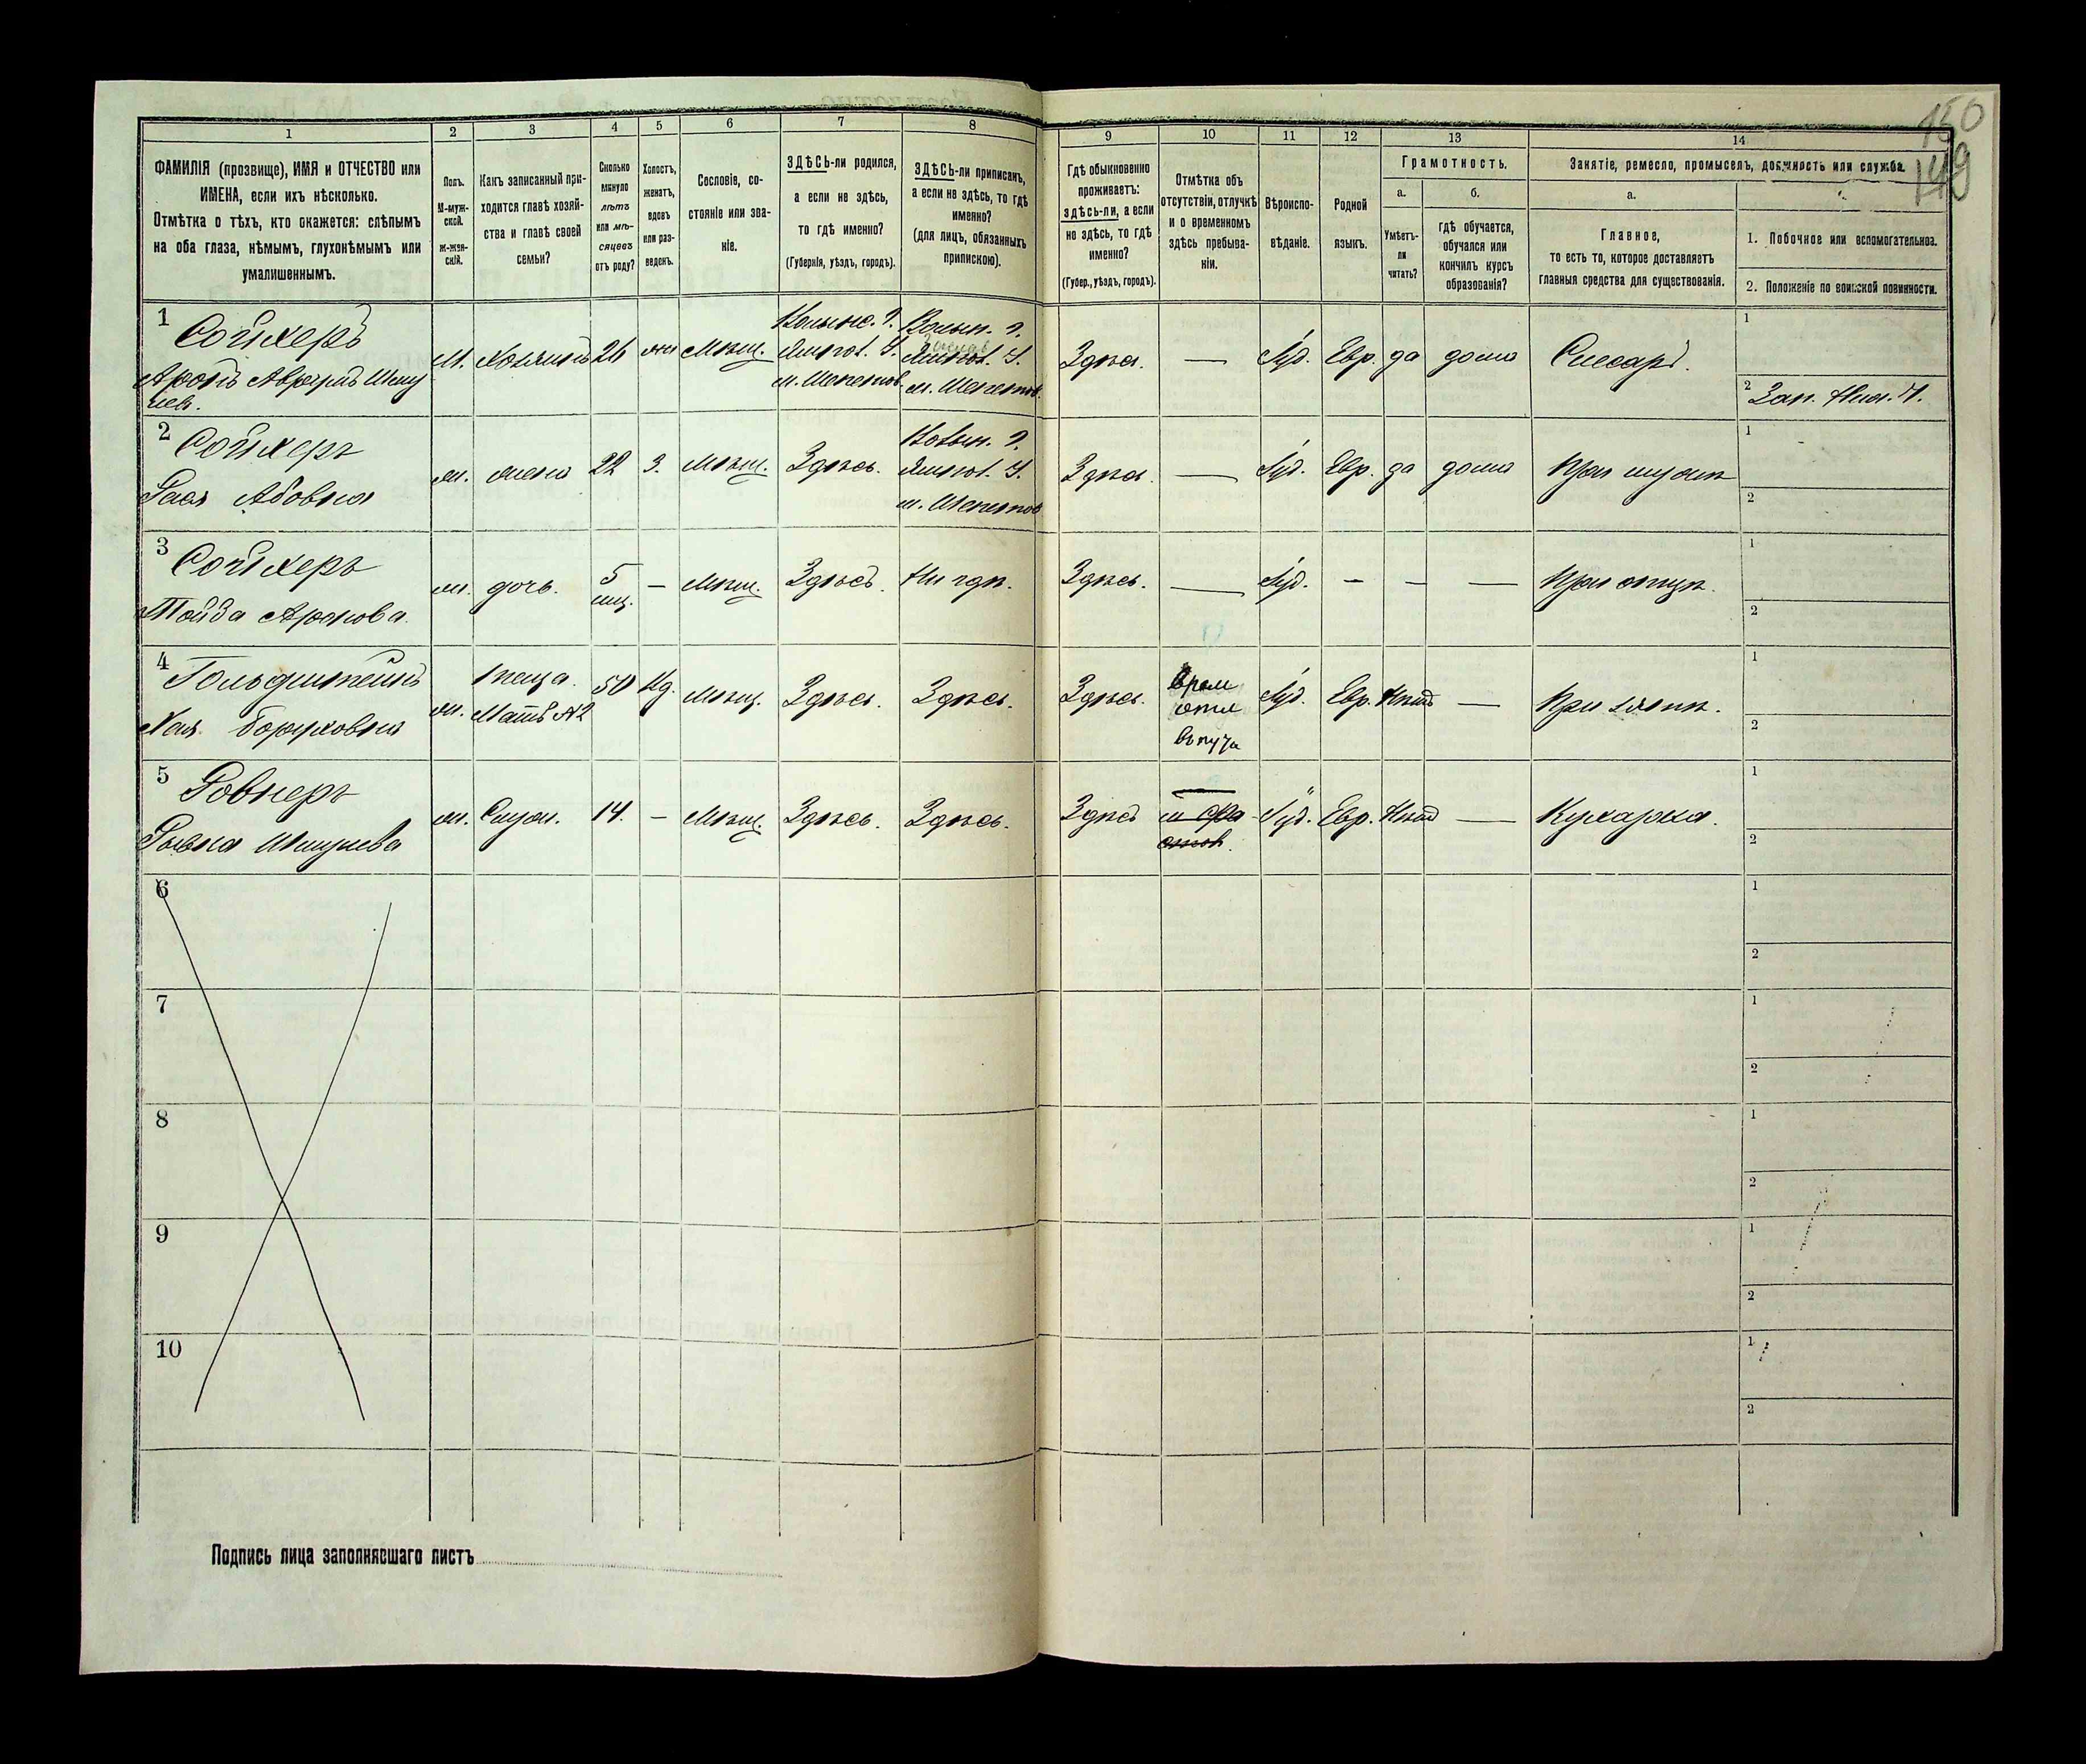 150
149
1
2
3
4
5
6
7
8
9
10
11
12
13
14
ФАМИЛІЯ (прозвище), ИМЯ и ОТЧЕСТВО или
ИМЕНА, если ихъ нѣсколько.
Отмѣтка о тѣхъ, кто окажется: слѣпымъ
на оба глаза, нѣмымъ, глухонѣмымъ или
умалишеннымъ.
Полъ.
М-муж-
ской.
Ж-жен-
скій.
Какъ записанный при-
ходится главѣ хозяй-
ства и главѣ своей
семьи?
Сколько
минуло
лѣтъ
или мѣ-
сяцевъ
отъ роду?
Холостъ,
женатъ,
вдовъ
или раз-
веденъ.
Сословіе, со-
стояніе или зва-
ніе.
ЗДѢСЬ-ли родился,
а если не здѣсь,
то гдѣ именно?
(Губернія, уѣздъ, городъ).
ЗДѢСЬ-ли приписанъ,
а если не здѣсь, то гдѣ
именно?
(для лицъ, обязанныхъ
припискою).
Гдѣ обыкновенно
проживаетъ:
здѣсь-ли, а если
не здѣсь, то гдѣ
именно?
(Губер., уѣздъ, городъ).
Отмѣтка объ
отсутствіи, отлучкѣ
и о временномъ
здѣсь пребыва-
ніи.
Вѣроиспо-
вѣданіе.
Родной
языкъ.
Грамотность.
а.
Умѣетъ-
ли
читать?
б.
гдѣ обучается,
обучался или
кончилъ курсъ
образованія?
Занятіе, ремесло, промыселъ, должность или служба.
а.
Главное,
то есть то, которое доставляетъ
главныя средства для существованія.
1. Побочное или вспомогательное.
2. Положеніе по воинской повинности.
1
Сойхеръ
Аронъ Аврумъ Шму
лев.
М. Хозяинъ 26 жен Мѣщ.
Волынс. г.
м. Шепетов.
Волын. г.
м. Шепетов.
Здѣсь. — Іуд. Евр. да дома Слесарь.
1
2 Зап. Ниж. Ч.
2
Сойхеръ
Рася Абовна
ж. жена 22 З. Мѣщ. Здѣсь.
Волын. г.
м. Шепетов
Здѣсь. — Іуд. Евр. да дома При мужѣ
1
2
3
Сойхеръ
Тойба Аронова.
ж. дочь. 5 мц. — Мѣщ. Здѣсь. Ни гдѣ. Здѣсь. — Іуд. — — — При отцѣ.
1
2
4
Гольдштейнъ
Хая Боруховна
ж.
теща.
Мать №2
50 Вд. Мѣщ. Здѣсь. Здѣсь. Здѣсь.
Врем
отл
Іуд. Евр. Нѣтъ — При зятѣ.
1
2
5
Ровнеръ
Рывка Шмулева
ж. Служ. 14. — Мѣщ. Здѣсь. Здѣсь. Здѣсь
Іуд. Евр. Нѣтъ — Кухарка.
1
2
6
1
2
7
1
2
8
1
2
9
1
2
10
1
2
Подпись лица заполнявшаго листъ